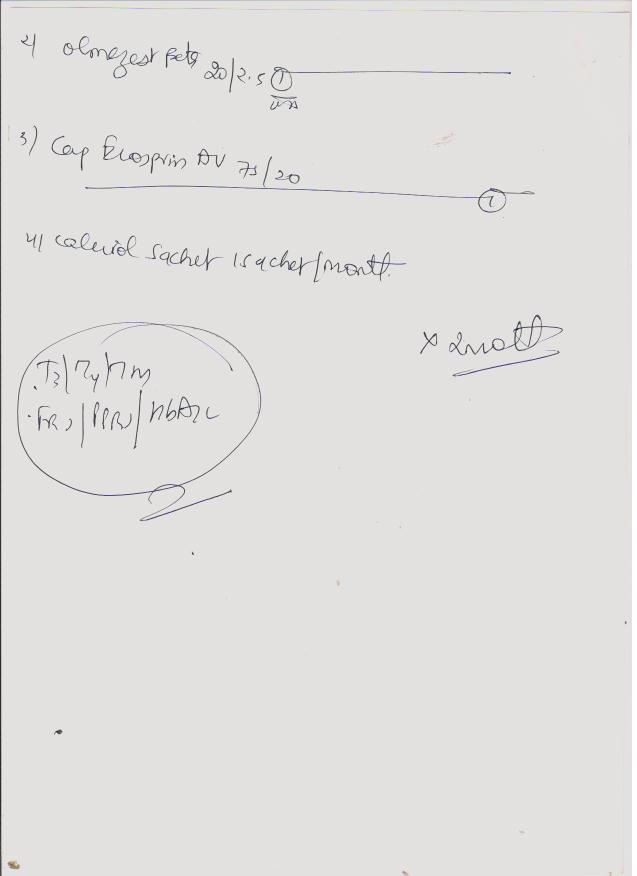 2) Olmezest beta 20/2.5 1
3) Cap Ecosprin AV 75/20
1
4) Calcirol Sachet 1 sachet/month.
x 2 month
T3/T4/TSH
FBS/PPBS/HbA1c